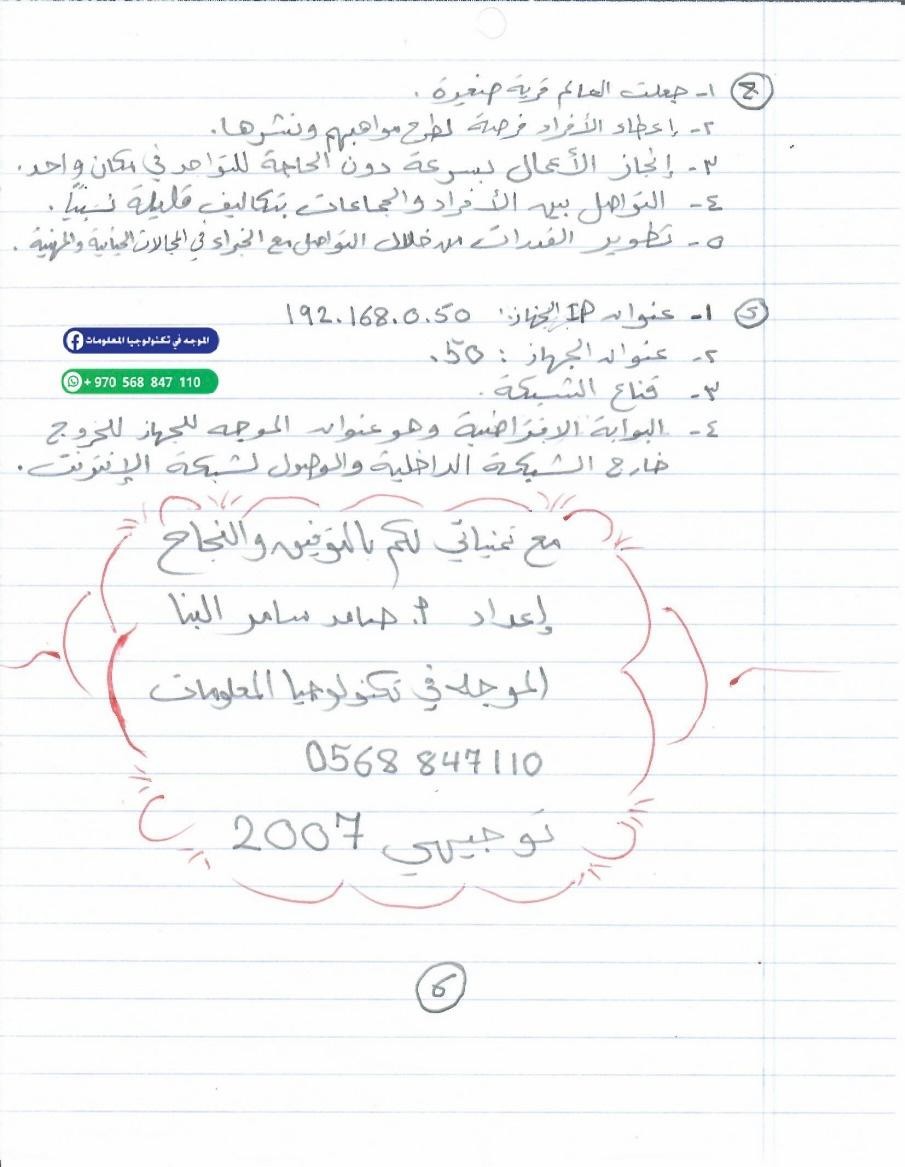 ج ١- جعلت العالم قرية صغيرة .
٢- إعطاء الأفراد فرصة لطرح مواهبهم ونشرها.
٣- إنجاز الأعمال بسرعة دون الحاجة للتواجد في مكان واحد.
٤- التواصل بين الأفراد والجماعات بتكاليف قليلة نسبيًا.
٥- تطوير القدرات من خلال التواصل مع الخبراء في المجالات الحياتية والمهنية .
د ١- عنوان IP الجهاز: 192.168.0.50
الموجه في تكنولوجيا المعلومات
٢- عنوان الجهاز : 50.
+ 970 568 847 110
٣- قناع الشبكة.
٤- البوابة الافتراضية وهو عنوان الموجه للجهاز للخروج
خارج الشبكة الداخلية والوصول لشبكة الإنترنت.
مع تمنياتي لكم بالتوفيق والنجاح
إعداد أ. سامر البنا
الموجه في تكنولوجيا المعلومات
0568 847110
توجيهي 2007
6